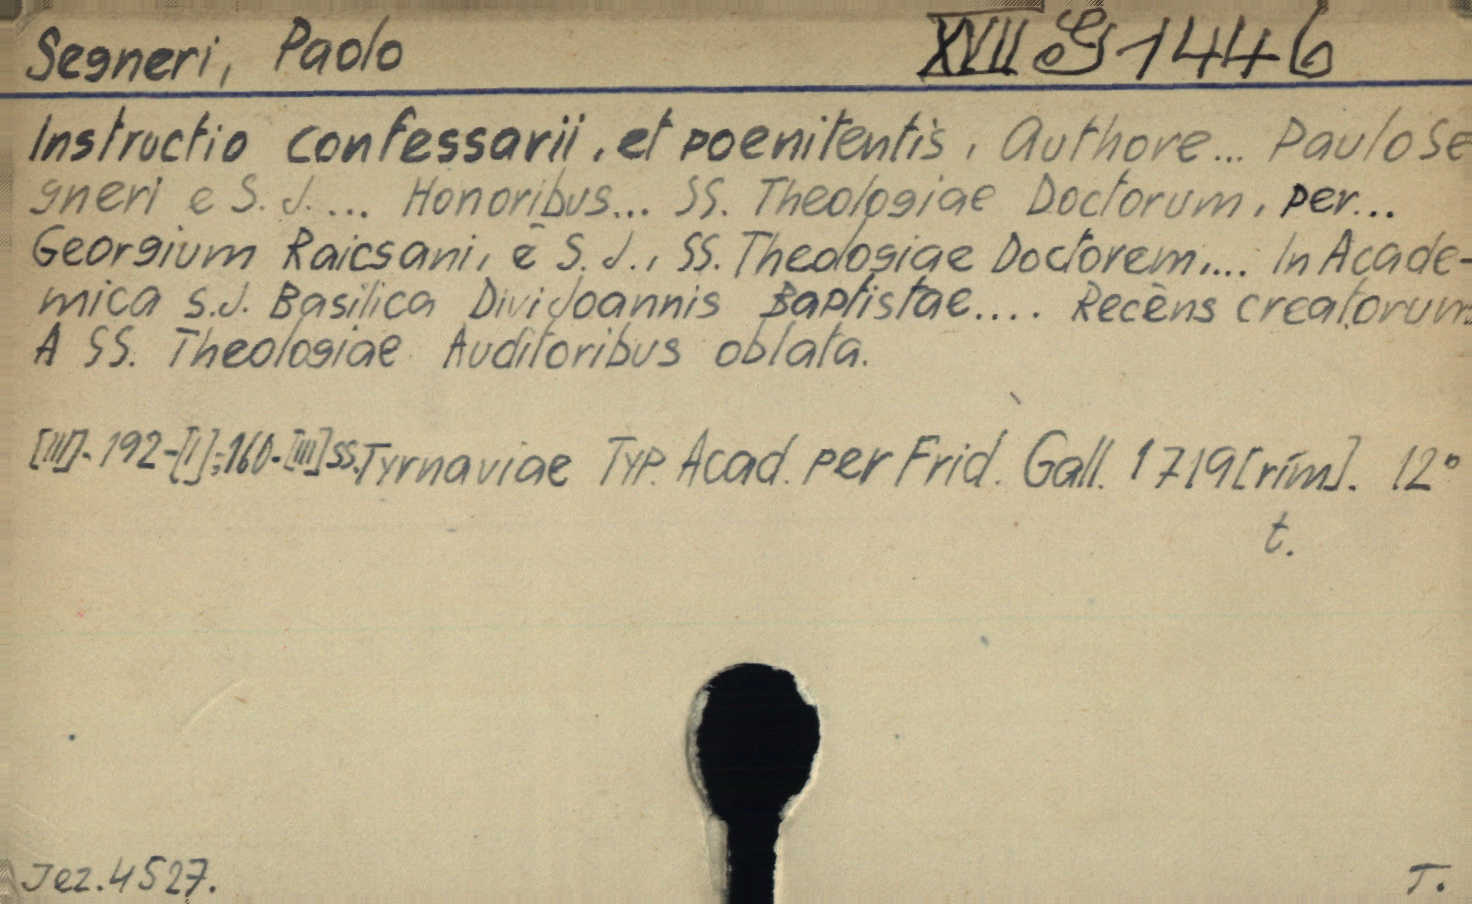 Segneri, Paolo XVIII G 1446
Instructio confessarii, et poenitentis, Authore... Paulo Se
gneri e S. J.... Honoribus... SS. Theologiae Doctorum, per...
Georgium Raicsani, è S. J., SS. Theologiae Doctorem,... In Acade-
mica S.J. Basilica Divi Joannis Baptistae.... Recèns creatorum
A SS. Theologiae Auditoribus oblata.
[III]. 192-[I]; 160-[III] ss. Tyrnaviae Typ. Acad. per Frid. Gall. 1719 [rím]. 12°
t.
Jez. 4527.
T.